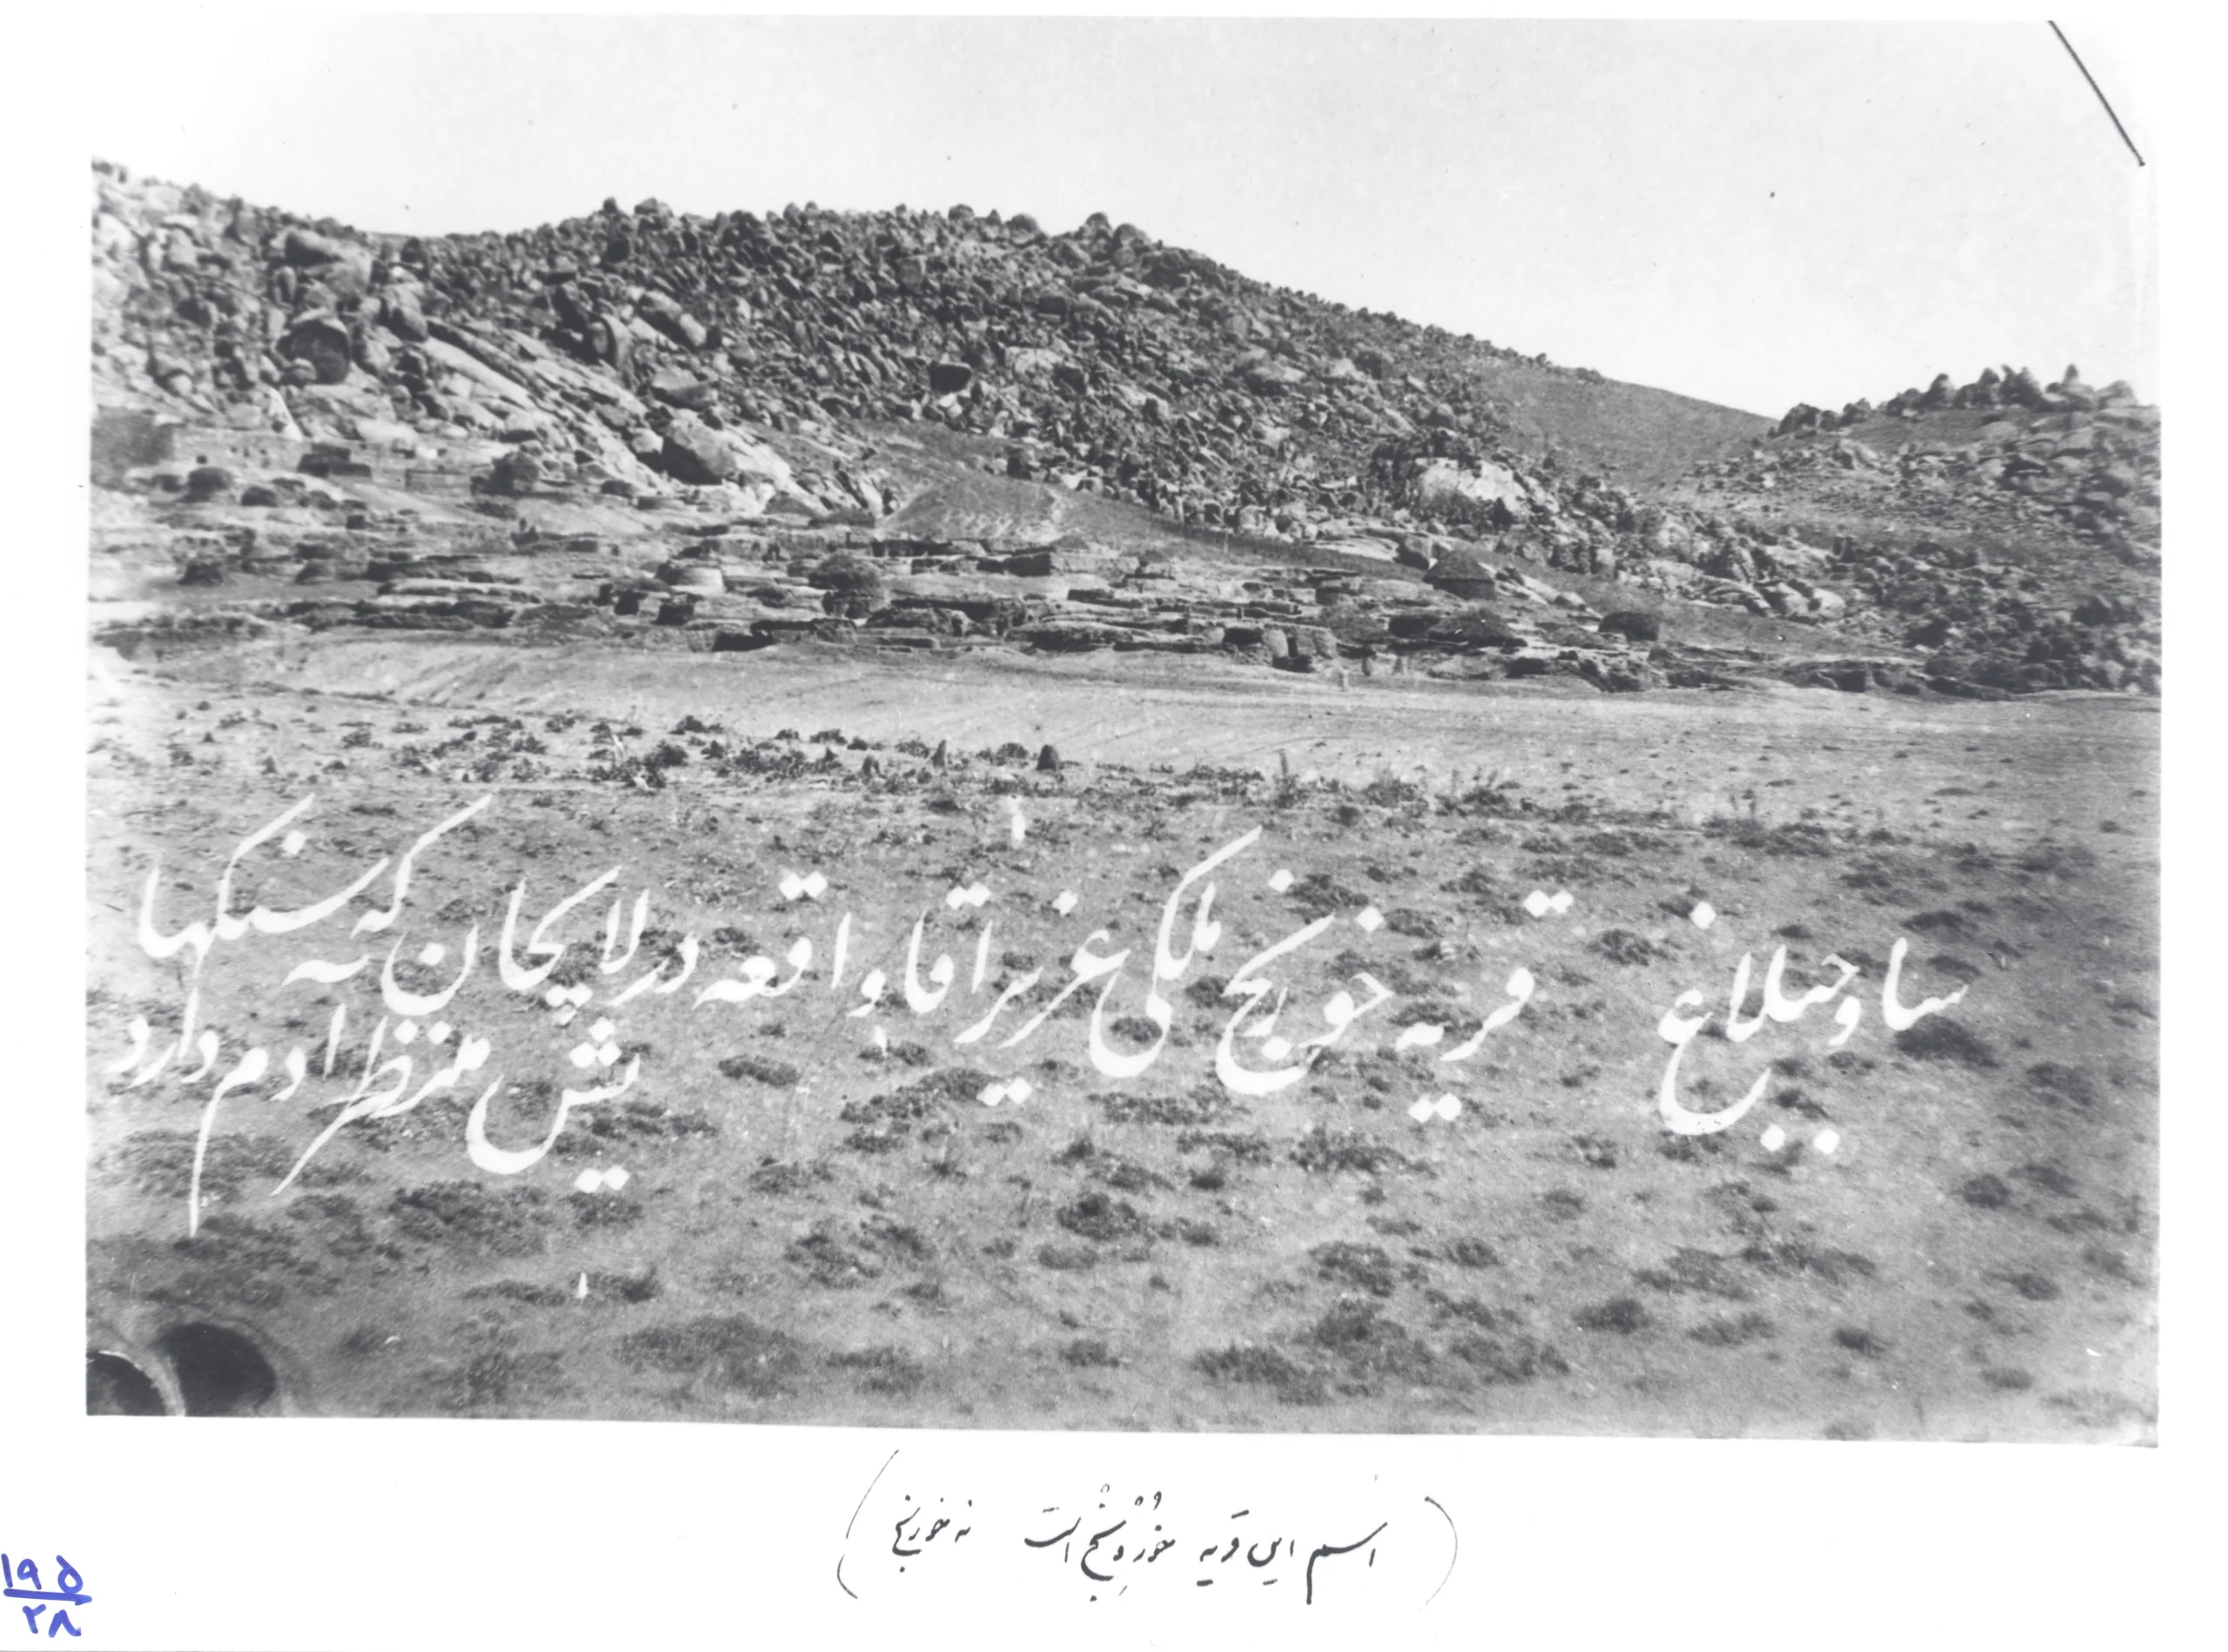 ساوجبلاغ قریه خورنج ملکی عزیز اقا واقعه در لاپجان که سنگها به
پیش منظر ادم دارد
(اسم این قریه است نه خورنج)
۱۹۵
۲۸